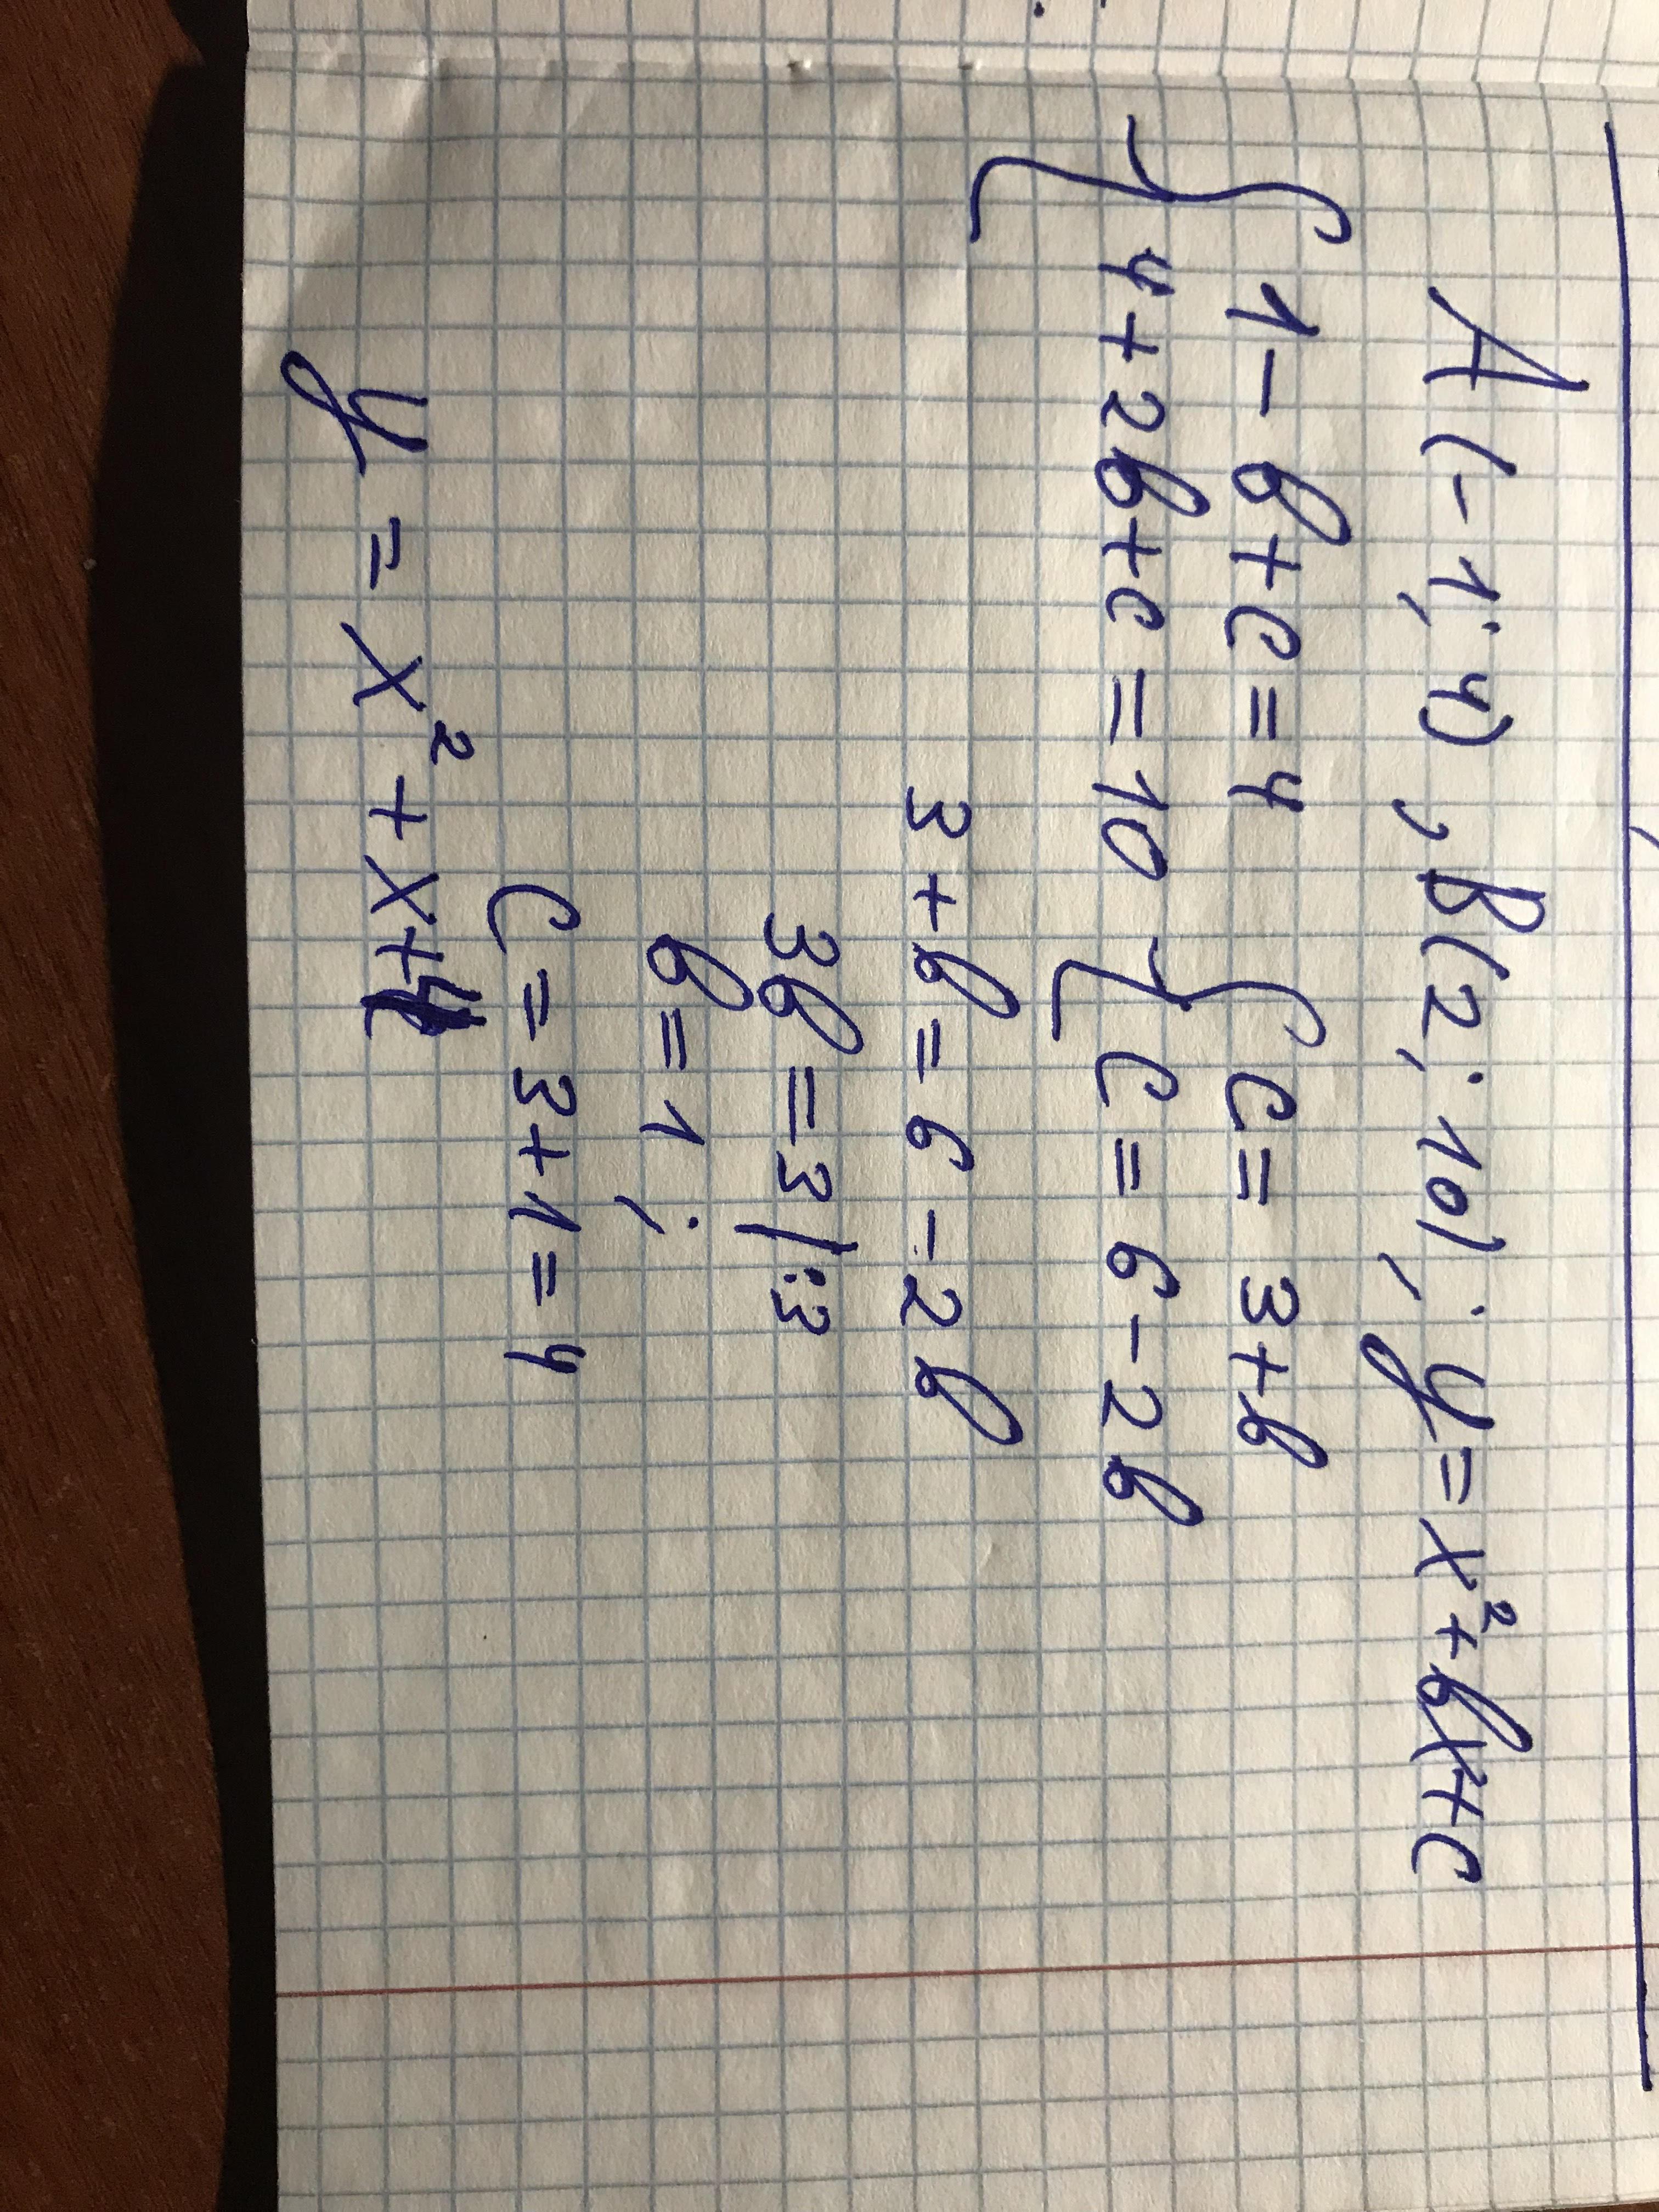 A(-1; 4), B(2; 10); y = x² + bx + c
{ 1 - b + c = 4 { c = 3 + b
{ 4 + 2b + c = 10 { c = 6 - 2b
3 + b = 6 - 2b
3b = 3 |:3
b = 1;
c = 3 + 1 = 4
y = x² + x + 4